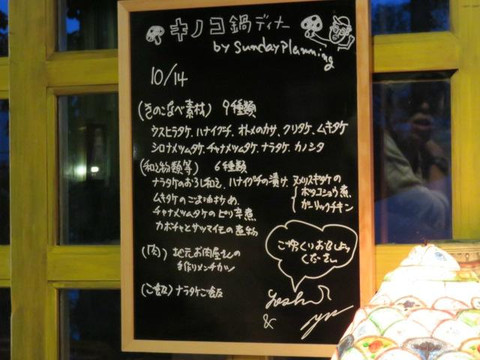 キノコ鍋ディナー
by Sunday Planning
10/14
(きのこなべ素材) 9種類
ウスヒラタケ、ハナイグチ、オトメのカサ、クリタケ、ムキタケ
シロナメツムタケ、チャナメツムタケ、ナラタケ、カノシタ
(和え物類等) 6種類
ナラタケのおろし和え、ハナイグチの漬け、ヌメリスギタケの
ホワコショウ煮
ガーリックチキン
ムキタケのごま油炒め、
チャナメツムタケのピリ辛煮
カボチャとサツマイモの煮物
(肉) 地元お肉屋さんの
手作りメンチカツ
(ご飯) ナラタケご飯
ごゆっくりお召し上がり
ください
&